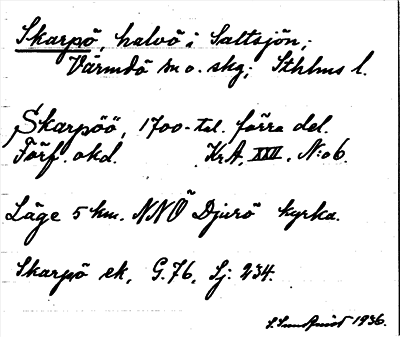 Skarpö, halvö i Saltsjön;
Värmdö m o. skg; Sthlms l.
Skarpöö, 1700-tal. förra del.
Förf. okd. KrA. XXVI. N:o 6.
Läge 5 km. NNÖ Djurö kyrka.
Skarpö ek, G.76, Sj: 234.
1936.